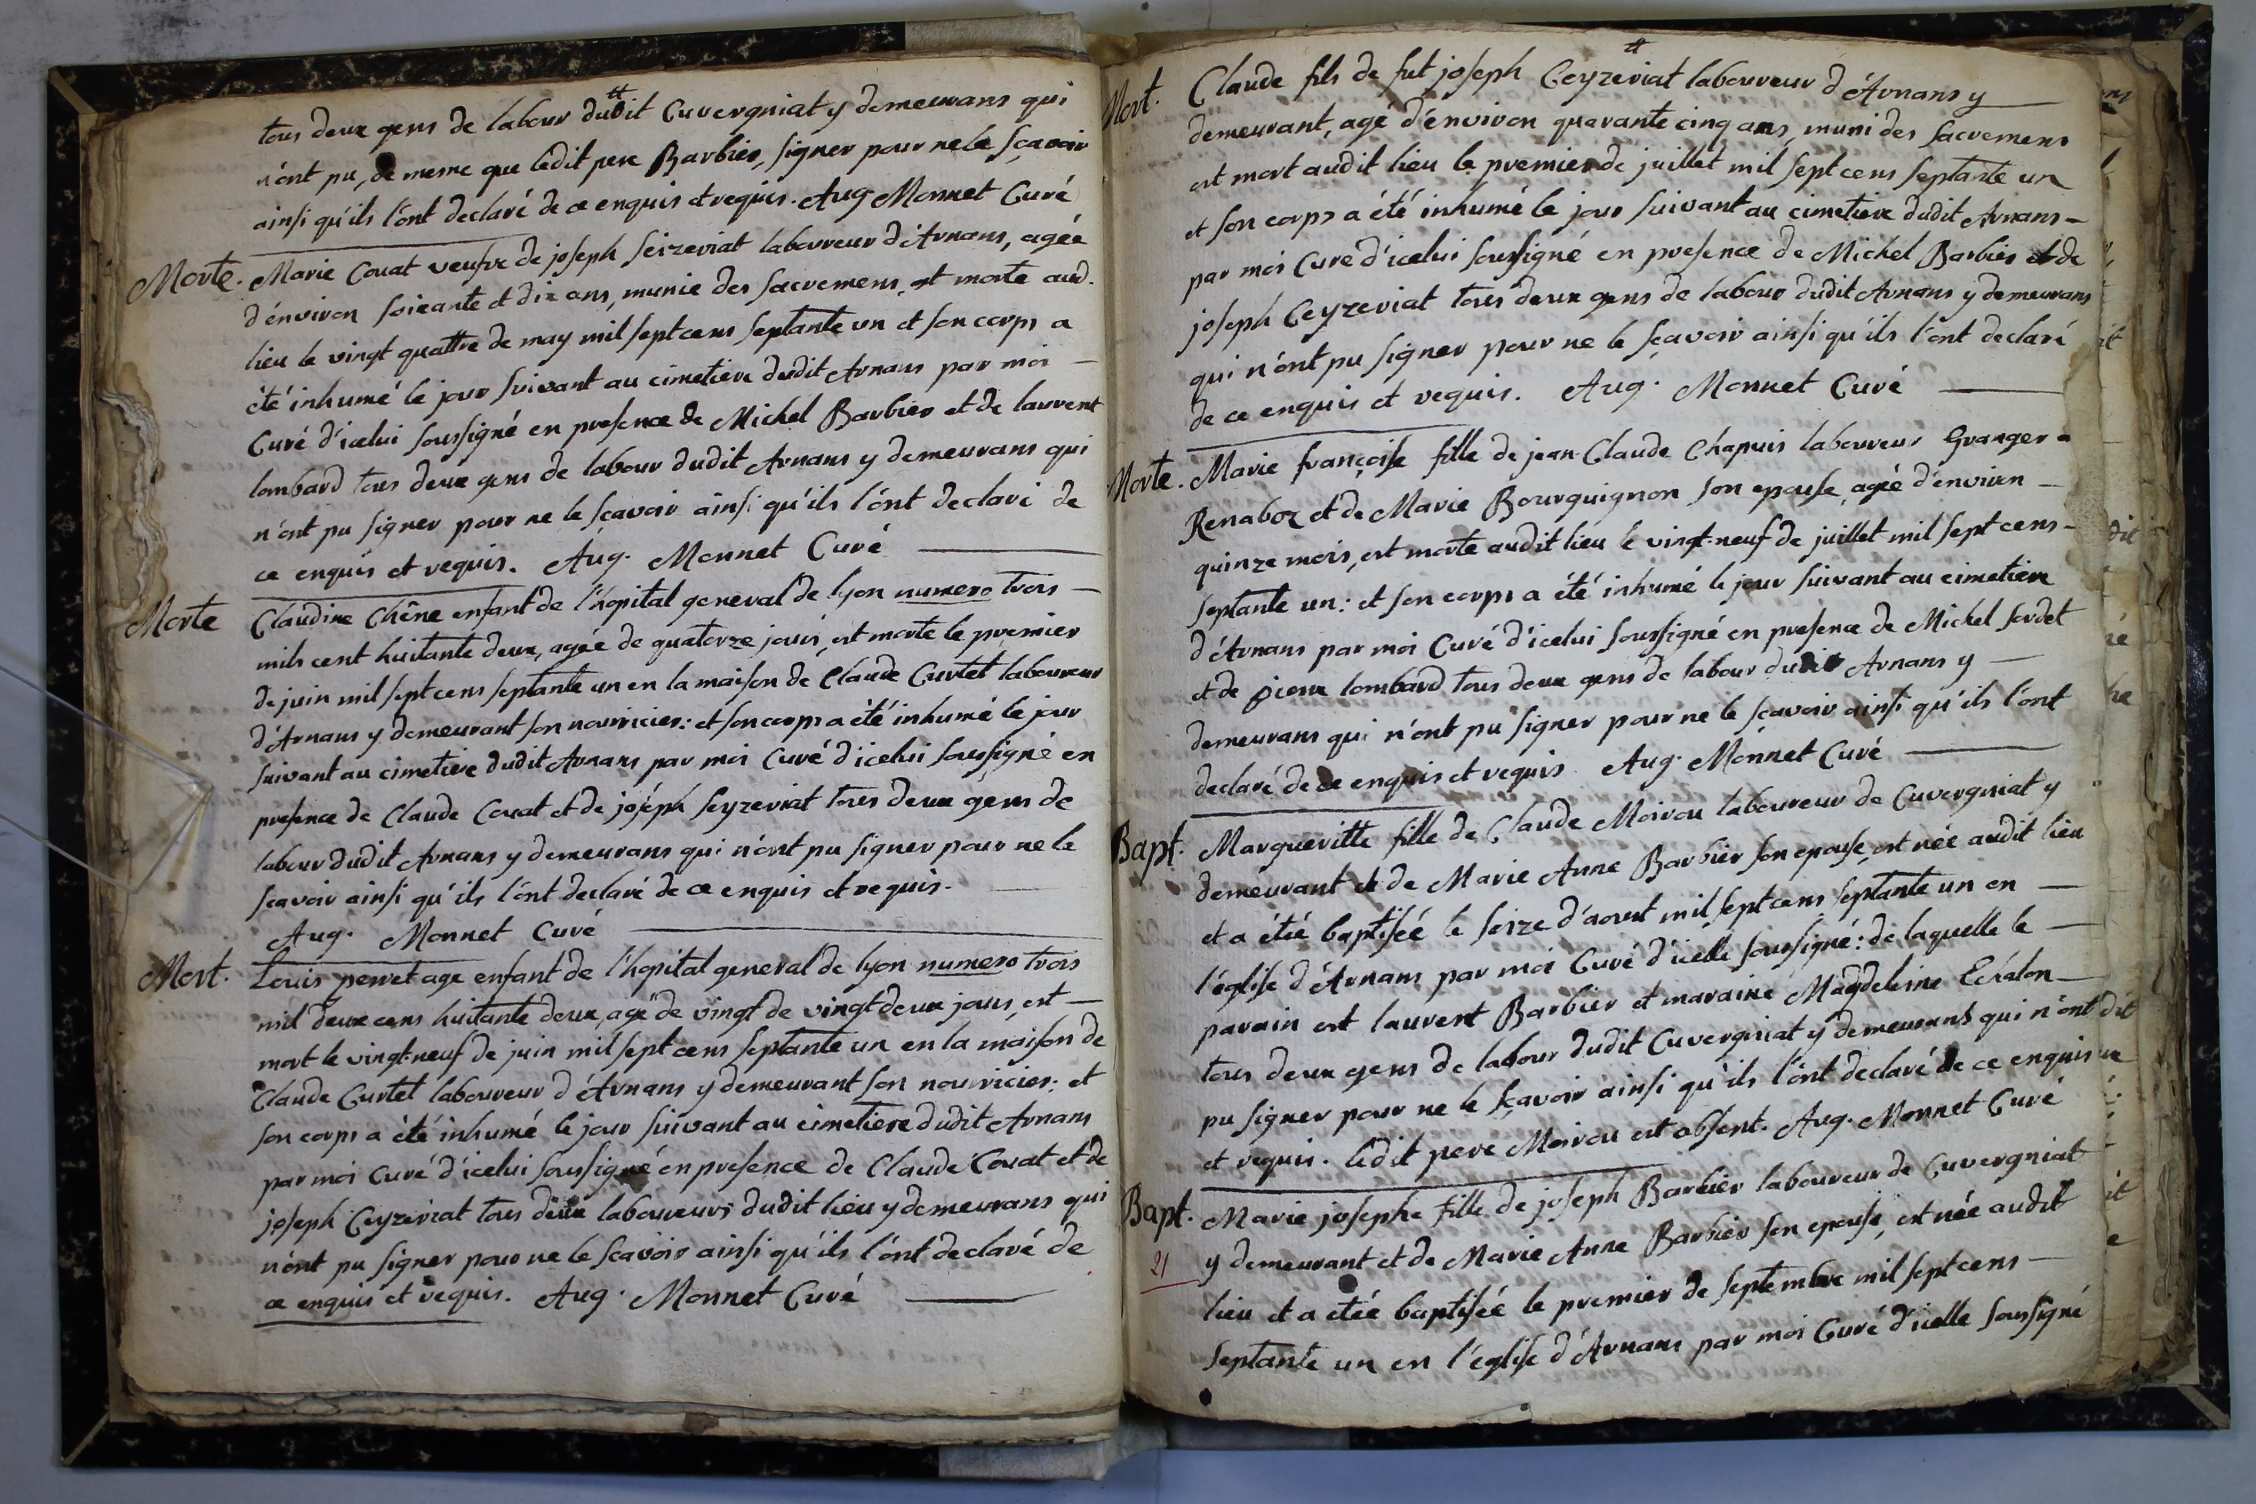 tous deux gens de labour dudit Cuvergniat y demeurans qui
n'ont pu, de meme que ledit pere Barbier, signer pour ne le sçavoir
ainsi qu'ils l'ont declaré de ce enquis et requis. Aug Monnet Curé
Morte. Marie Couat veufve de joseph Seizeriat laboureur d'Arnans, agée
d'environ soixante et dix ans, munie des sacremens, est morte aud.
lieu le vingt quattre de may mil sept cens septante un et son corps a
été inhumé le jour suivant au cimetiere dudit Arnans par moi —
Curé d'icelui soussigné en presence de Michel Barbier et de laurent
lombard tous deux gens de labour dudit Arnans y demeurans qui
n'ont pu signer pour ne le sçavoir ainsi qu'ils l'ont declaré de
ce enquis et requis. Aug. Monnet Curé
Morte Claudine Chêne enfant de l'hopital general de lyon numero trois —
mils cent huitante deux, agée de quatorze jours, est morte le premier
de juin mil sept cens septante un en la maison de Claude Curtet laboureur
d'Arnans y demeurant son nourricier: et son corps a été inhumé le jour
suivant au cimetiere dudit Arnans par moi Curé d'icelui soussigné en
presence de Claude Couat et de joseph Seyzeriat tous deux gens de
labour dudit Arnans y demeurans qui n'ont pu signer pour ne le
scavoir ainsi qu'ils l'ont declaré de ce enquis et requis. —
Aug. Monnet Curé
Mort. Louis perret age enfant de l'hopital general de lyon numero trois
mil deux cens huitante deux, agé de vingt de vingt deux jours, est —
mort le vingt-neuf de juin mil sept cens septante un en la maison de
Claude Curtet laboureur d'Arnans y demeurant son nourricier: et
son corps a été inhumé le jour suivant au cimetiere dudit Arnans
par moi Curé d'icelui soussigné en presence de Claude Couat et de
joseph Ceyzeriat tous deux laboureurs dudit lieu y demeurans qui
n'ont pu signer pour ne le scavoir ainsi qu'ils l'ont declaré de
ce enquis et requis. Aug. Monnet Curé
Mort. Claude fils de fut joseph Ceyzeriat laboureur d'Arnans y
demeurant, agé d'environ quarante cinq ans, muni des sacremens
est mort audit lieu le premier de juillet mil sept cens septante un
et son corps a été inhumé le jour suivant au cimetiere dudit Arnans —
par moi Curé d'icelui soussigné en presence de Michel Barbier et de
joseph Ceyzeriat tous deux gens de labour dudit Arnans y demeurans
qui n'ont pu signer pour ne le sçavoir ainsi qu'ils l'ont declaré
de ce enquis et requis. Aug. Monnet Curé
Morte. Marie françoise fille de jean-Claude Chapuis laboureur Granger a
Renaboz et de Marie Bourguignon son epouse, agée d'environ —
quinze mois, est morte audit lieu le vingt-neuf de juillet mil sept cens —
septante un: et son corps a été inhumé le jour suivant au cimetiere
d'Arnans par moi Curé d'icelui soussigné en presence de Michel Sordet
et de pierre lombard tous deux gens de labour dudit Arnans y —
demeurans qui n'ont pu signer pour ne le sçavoir ainsi qu'ils l'ont
declaré de ce enquis et requis. Aug. Monnet Curé
Bapt. Margueritte fille de Claude Moirou laboureur de Cuvergniat y
demeurant et de Marie Anne Barbier son epouse, est née audit lieu
et a étié baptisée le seize d'aoust mil sept cens septante un en —
l'église d'Arnans par moi Curé d'icelle soussigné: de laquelle le —
parain est laurent Barbier et maraine Magdeleine Echalon —
tous deux gens de labour dudit Cuvergniat y demeurans qui n'ont
pu signer pour ne le sçavoir ainsi qu'ils l'ont declaré de ce enquis
et requis. ledit pere Moirou est absent. Aug. Monnet Curé
Bapt. Marie josephe fille de joseph Barbier laboureur de Cuvergniat
21 y demeurant et de Marie Anne Barbier son epouse, est née audit
lieu et a etié baptisée le premier de septembre mil sept cens —
septante un en l'eglise d'Arnans par moi Curé d'icelle soussigné